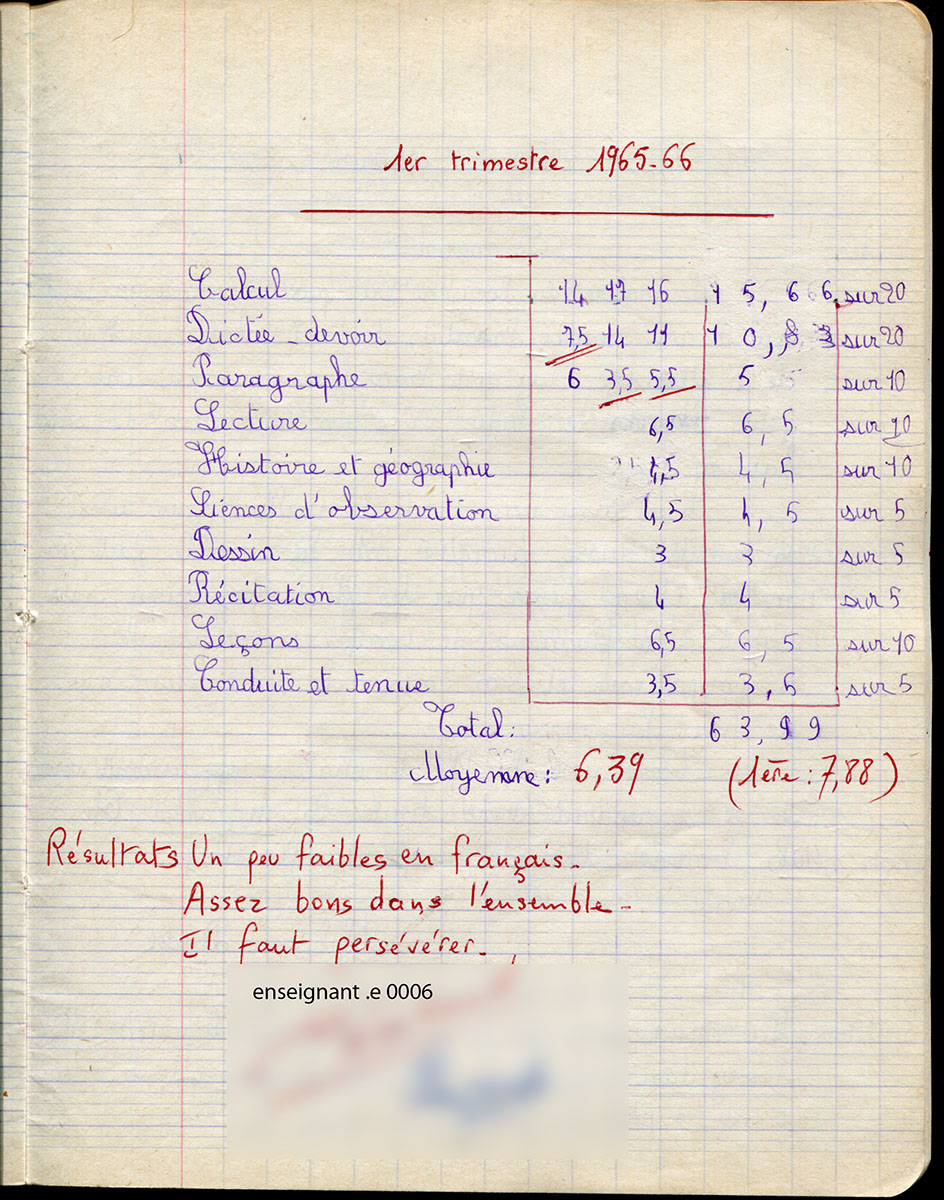 1er trimestre 1965-66
Calcul 14 17 16 15,66 sur 20
Dictée - devoir 7,5 14 11 10,83 sur 20
Paragraphe 6 3,5 5,5 5 sur 10
Lecture 6,5 6,5 sur 10
Histoire et géographie 4,5 4,5 sur 10
Sciences d'observation 4,5 4,5 sur 5
Dessin 3 3 sur 5
Récitation 4 4 sur 5
Leçons 6,5 6,5 sur 10
Conduite et tenue 3,5 3,5 sur 5
Total: 63,99
Moyenne: 6,39 (1ère : 7,88)
Résultats Un peu faibles en français.
Assez bons dans l'ensemble.
Il faut persévérer.
enseignant .e 0006